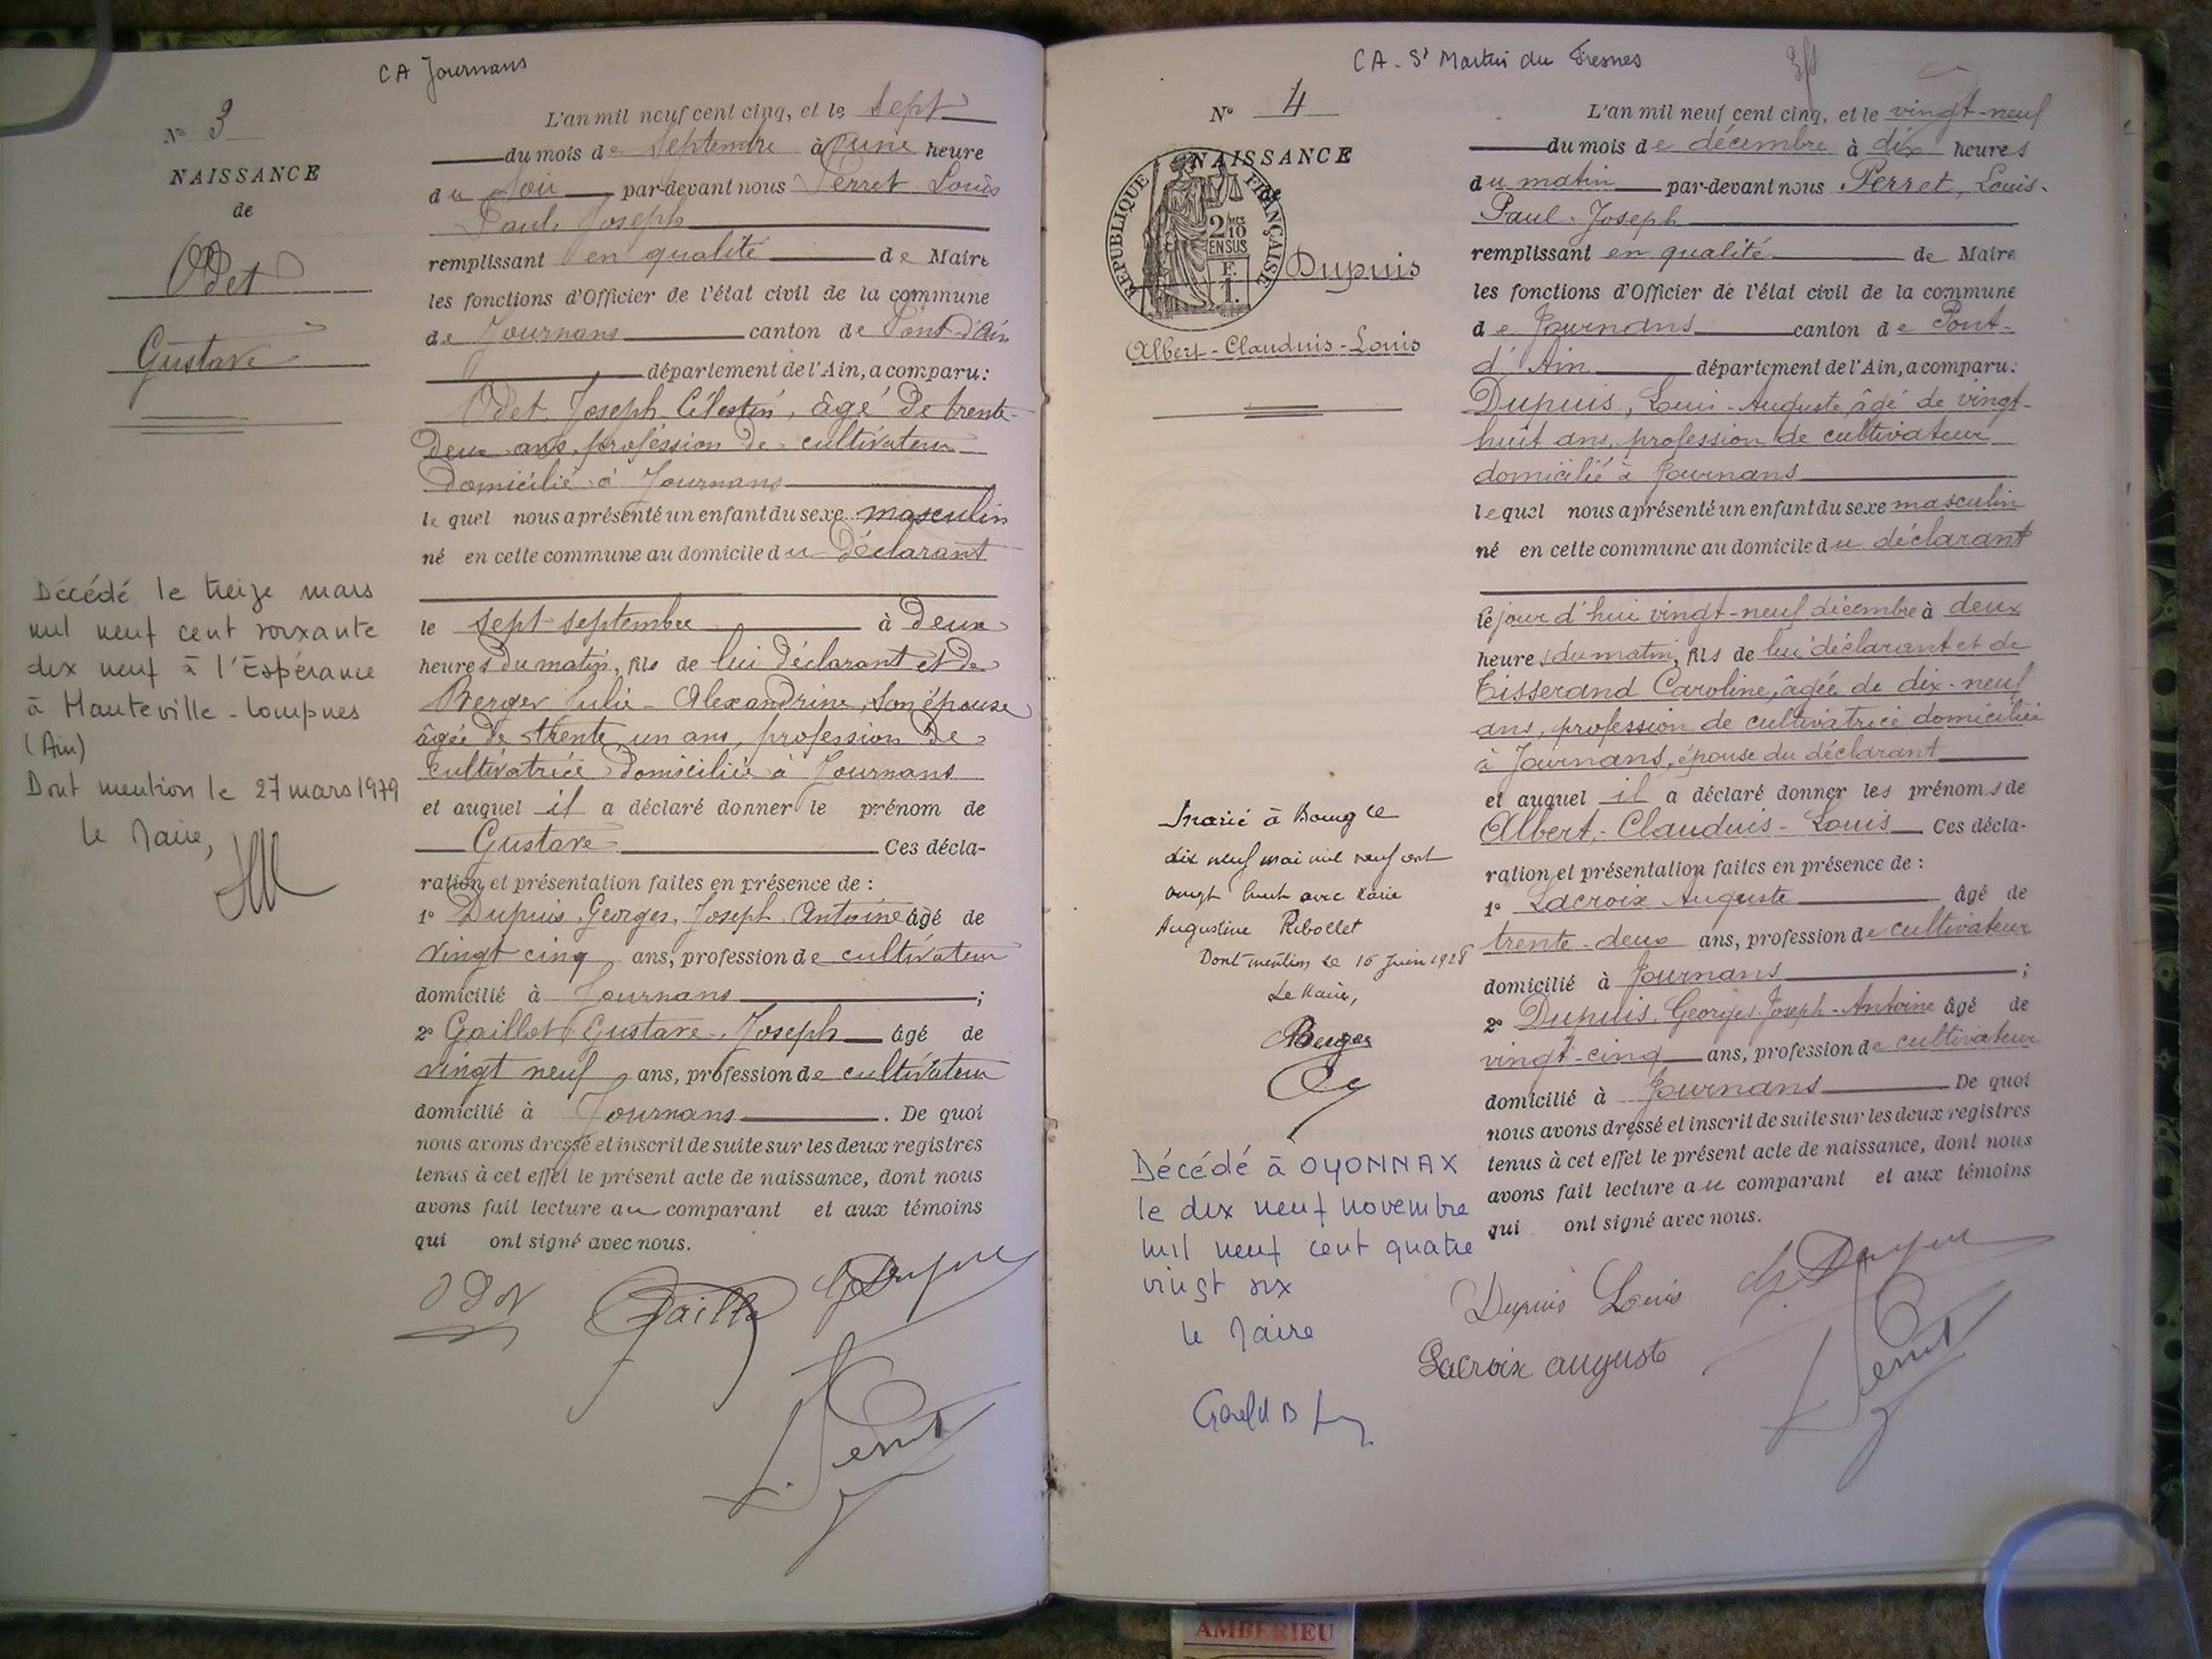 CA Journans
N° 3
NAISSANCE
de
Odet
Gustave
Décédé le treize mars
mil neuf cent soixante
dix neuf à l'Espérance
à Hauteville-Lompnes
(Ain)
Dont mention le 27 mars 1979
le Maire,
L'an mil neuf cent cinq, et le sept
du mois de Septembre à une heure
du soir par-devant nous Perret Louis
Paul Joseph
remplissant en qualité de Maire
les fonctions d'Officier de l'état civil de la commune
de Journans canton de Pont-d'Ain
département de l'Ain, a comparu:
Odet Joseph Célestin, âgé de trente-
deux ans, profession de cultivateur
domicilié à Journans
lequel nous a présenté un enfant du sexe masculin
né en cette commune au domicile du déclarant
le sept septembre à deux
heures du matin, fils de lui déclarant et de
Berger Julie-Alexandrine, son épouse
âgée de trente un ans, profession de
cultivatrice domiciliée à Journans
et auquel il a déclaré donner le prénom de
Gustave Ces décla-
ration et présentation faites en présence de :
1° Dupuis, Georges, Joseph, Antoine âgé de
vingt cinq ans, profession de cultivateur
domicilié à Journans ;
2° Gaillot Gustave-Joseph âgé de
vingt neuf ans, profession de cultivateur
domicilié à Journans . De quoi
nous avons dressé et inscrit de suite sur les deux registres
tenus à cet effet le présent acte de naissance, dont nous
avons fait lecture au comparant et aux témoins
qui ont signé avec nous.
CA - St Martin du Fresnes
N° 4
NAISSANCE
REPUBLIQUE FRANÇAISE
2/10 EN SUS
F.
1.
Dupuis
Albert-Claudius-Louis
Marié à Bourg le
dix neuf mai mil neuf cent
vingt huit avec Marie
Augustine Ribollet
Dont mention le 16 Juin 1928
Le Maire,
Berger
Décédé à OYONNAX
le dix neuf novembre
mil neuf cent quatre
vingt six
le Maire
L'an mil neuf cent cinq, et le vingt-neuf
du mois de décembre à dix heures
du matin par-devant nous Perret, Louis-
Paul-Joseph
remplissant en qualité de Maire
les fonctions d'Officier de l'état civil de la commune
de Journans canton de Pont-
d'Ain département de l'Ain, a comparu:
Dupuis, Louis-Auguste, âgé de vingt-
huit ans, profession de cultivateur
domicilié à Journans
lequel nous a présenté un enfant du sexe masculin
né en cette commune au domicile du déclarant
le jour d'hui vingt-neuf décembre à deux
heures du matin, fils de lui déclarant et de
Tisserand Caroline, âgée de dix-neuf
ans, profession de cultivatrice domiciliée
à Journans, épouse du déclarant
et auquel il a déclaré donner les prénoms de
Albert-Claudius-Louis Ces décla-
ration et présentation faites en présence de :
1° Lacroix Auguste âgé de
trente-deux ans, profession de cultivateur
domicilié à Journans ;
2° Dupuis, Georges-Joseph-Antoine âgé de
vingt-cinq ans, profession de cultivateur
domicilié à Journans De quoi
nous avons dressé et inscrit de suite sur les deux registres
tenus à cet effet le présent acte de naissance, dont nous
avons fait lecture au comparant et aux témoins
qui ont signé avec nous.
Dupuis Louis
Lacroix auguste
AMBERIEU